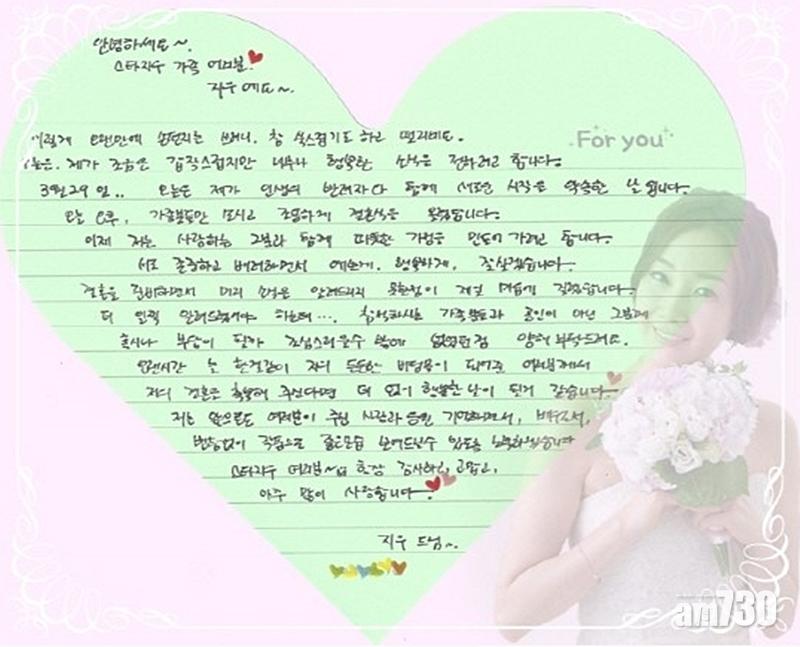 안녕하세요~.
스타지우 가족 여러분.
지우 예요~.
이렇게 오랜만에 손편지를 쓰려니, 참 쑥스럽기도 하고 떨리네요.
오늘은. 제가 조금은 갑작스럽지만 너무나 행복한 소식을 전하려고 합니다.
3월 29일.. 오늘은 제가 인생의 반려자와 함께 새로운 시작을 약속한 날 입니다.
오늘 오후, 가족분들만 모시고 조용하게 결혼식을 올렸습니다.
이제 저는 사랑하는 그분과 함께 따뜻한 가정을 만들어 가려고 합니다.
서로 존중하고 배려하면서 예쁘게. 행복하게, 잘살겠습니다.
결혼을 준비하면서 미리 소식을 알려드리지 못한점이 제일 마음에 걸렸습니다.
더 일찍 알려드렸어야 하는데…. 참석하시는 가족분들과 공인이 아닌 그분께
혹시나 부담이 될까 조심스러울수 밖에 없었던점 양해 부탁드려요.
오랜시간 늘 한결같이 저의 든든한 버팀목이 되어준 여러분께서
저의 결혼을 축복해 주신다면 더 없이 행복한 날이 될거 같습니다.
저는 앞으로도 여러분이 주신 사랑과 응원 기억하면서, 배우로서,
변함없이 작품으로 좋은모습 보여드릴수 있도록 노력하겠습니다
스타지우 여러분~ 항상 감사하고, 고맙고,
아주 많이 사랑합니다~
지우 드림~.
For you
am730